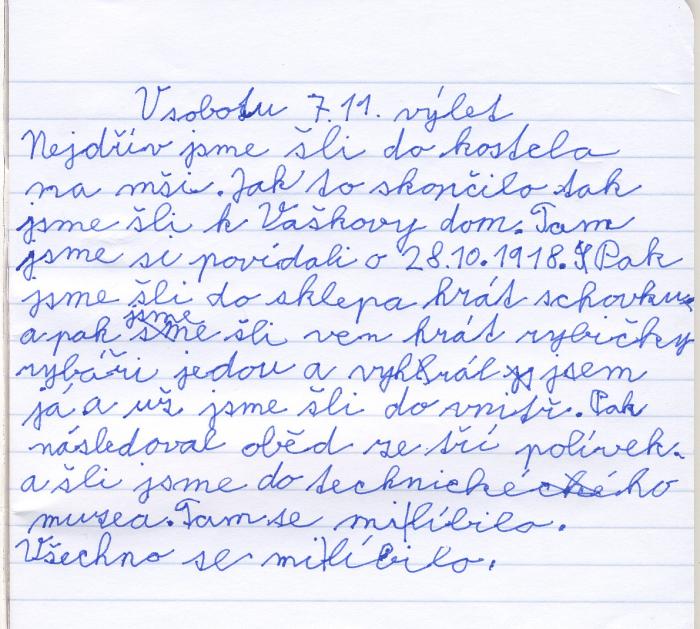 V sobotu 7.11. výlet
Nejdřív jsme šli do kostela
na mši. Jak to skončilo tak
jsme šli k Vaškovy dom. Tam
jsme si povídali o 28.10.1918. Pak
jsme šli do sklepa hrát schovku
jsme
a pak sme šli ven hrát rybičky
rybáři jedou a vyhrál jsem
já a už jsme šli do vnitř. Pak
následoval oběd ze tří polívek.
a šli jsme do technického
muzea. Tam se mi líbilo.
Všechno se mi líbilo.